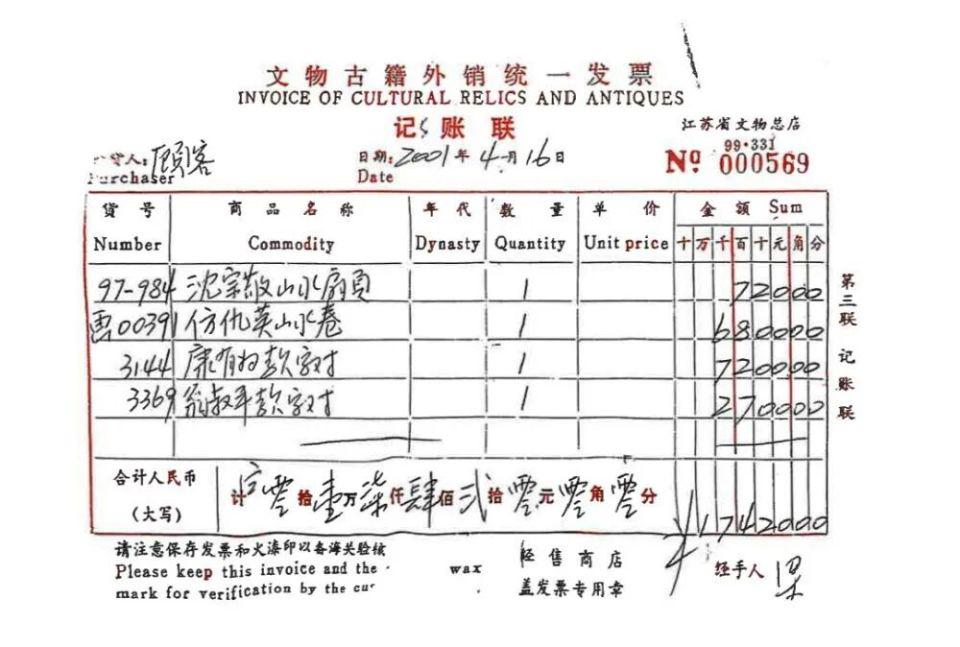 文物古籍外销统一发票
INVOICE OF CULTURAL RELICS AND ANTIQUES
记账联
江苏省文物总店
99·331
货人: 顾客
Purchaser
日期: 2001年4月16日
Date
Nº 000569
货号 商品名称 年代 数量 单价 金额 Sum
Number Commodity Dynasty Quantity Unit price 十万千百十元角分
97-984 沈宗敬山水扇页 1 72000
00391 仿仇英山水卷 1 680000
3144 康有为款字对 1 720000
3369 翁叔平款字对 1 270000
合计人民币
(大写)
计 零拾壹万柒仟肆佰贰拾零元零角零分 ¥1742000
第三联 记账联
请注意保存发票和火漆印以备海关验核
Please keep this invoice and the wax
mark for verification by the cu
经售商店
盖发票专用章
经手人 梁